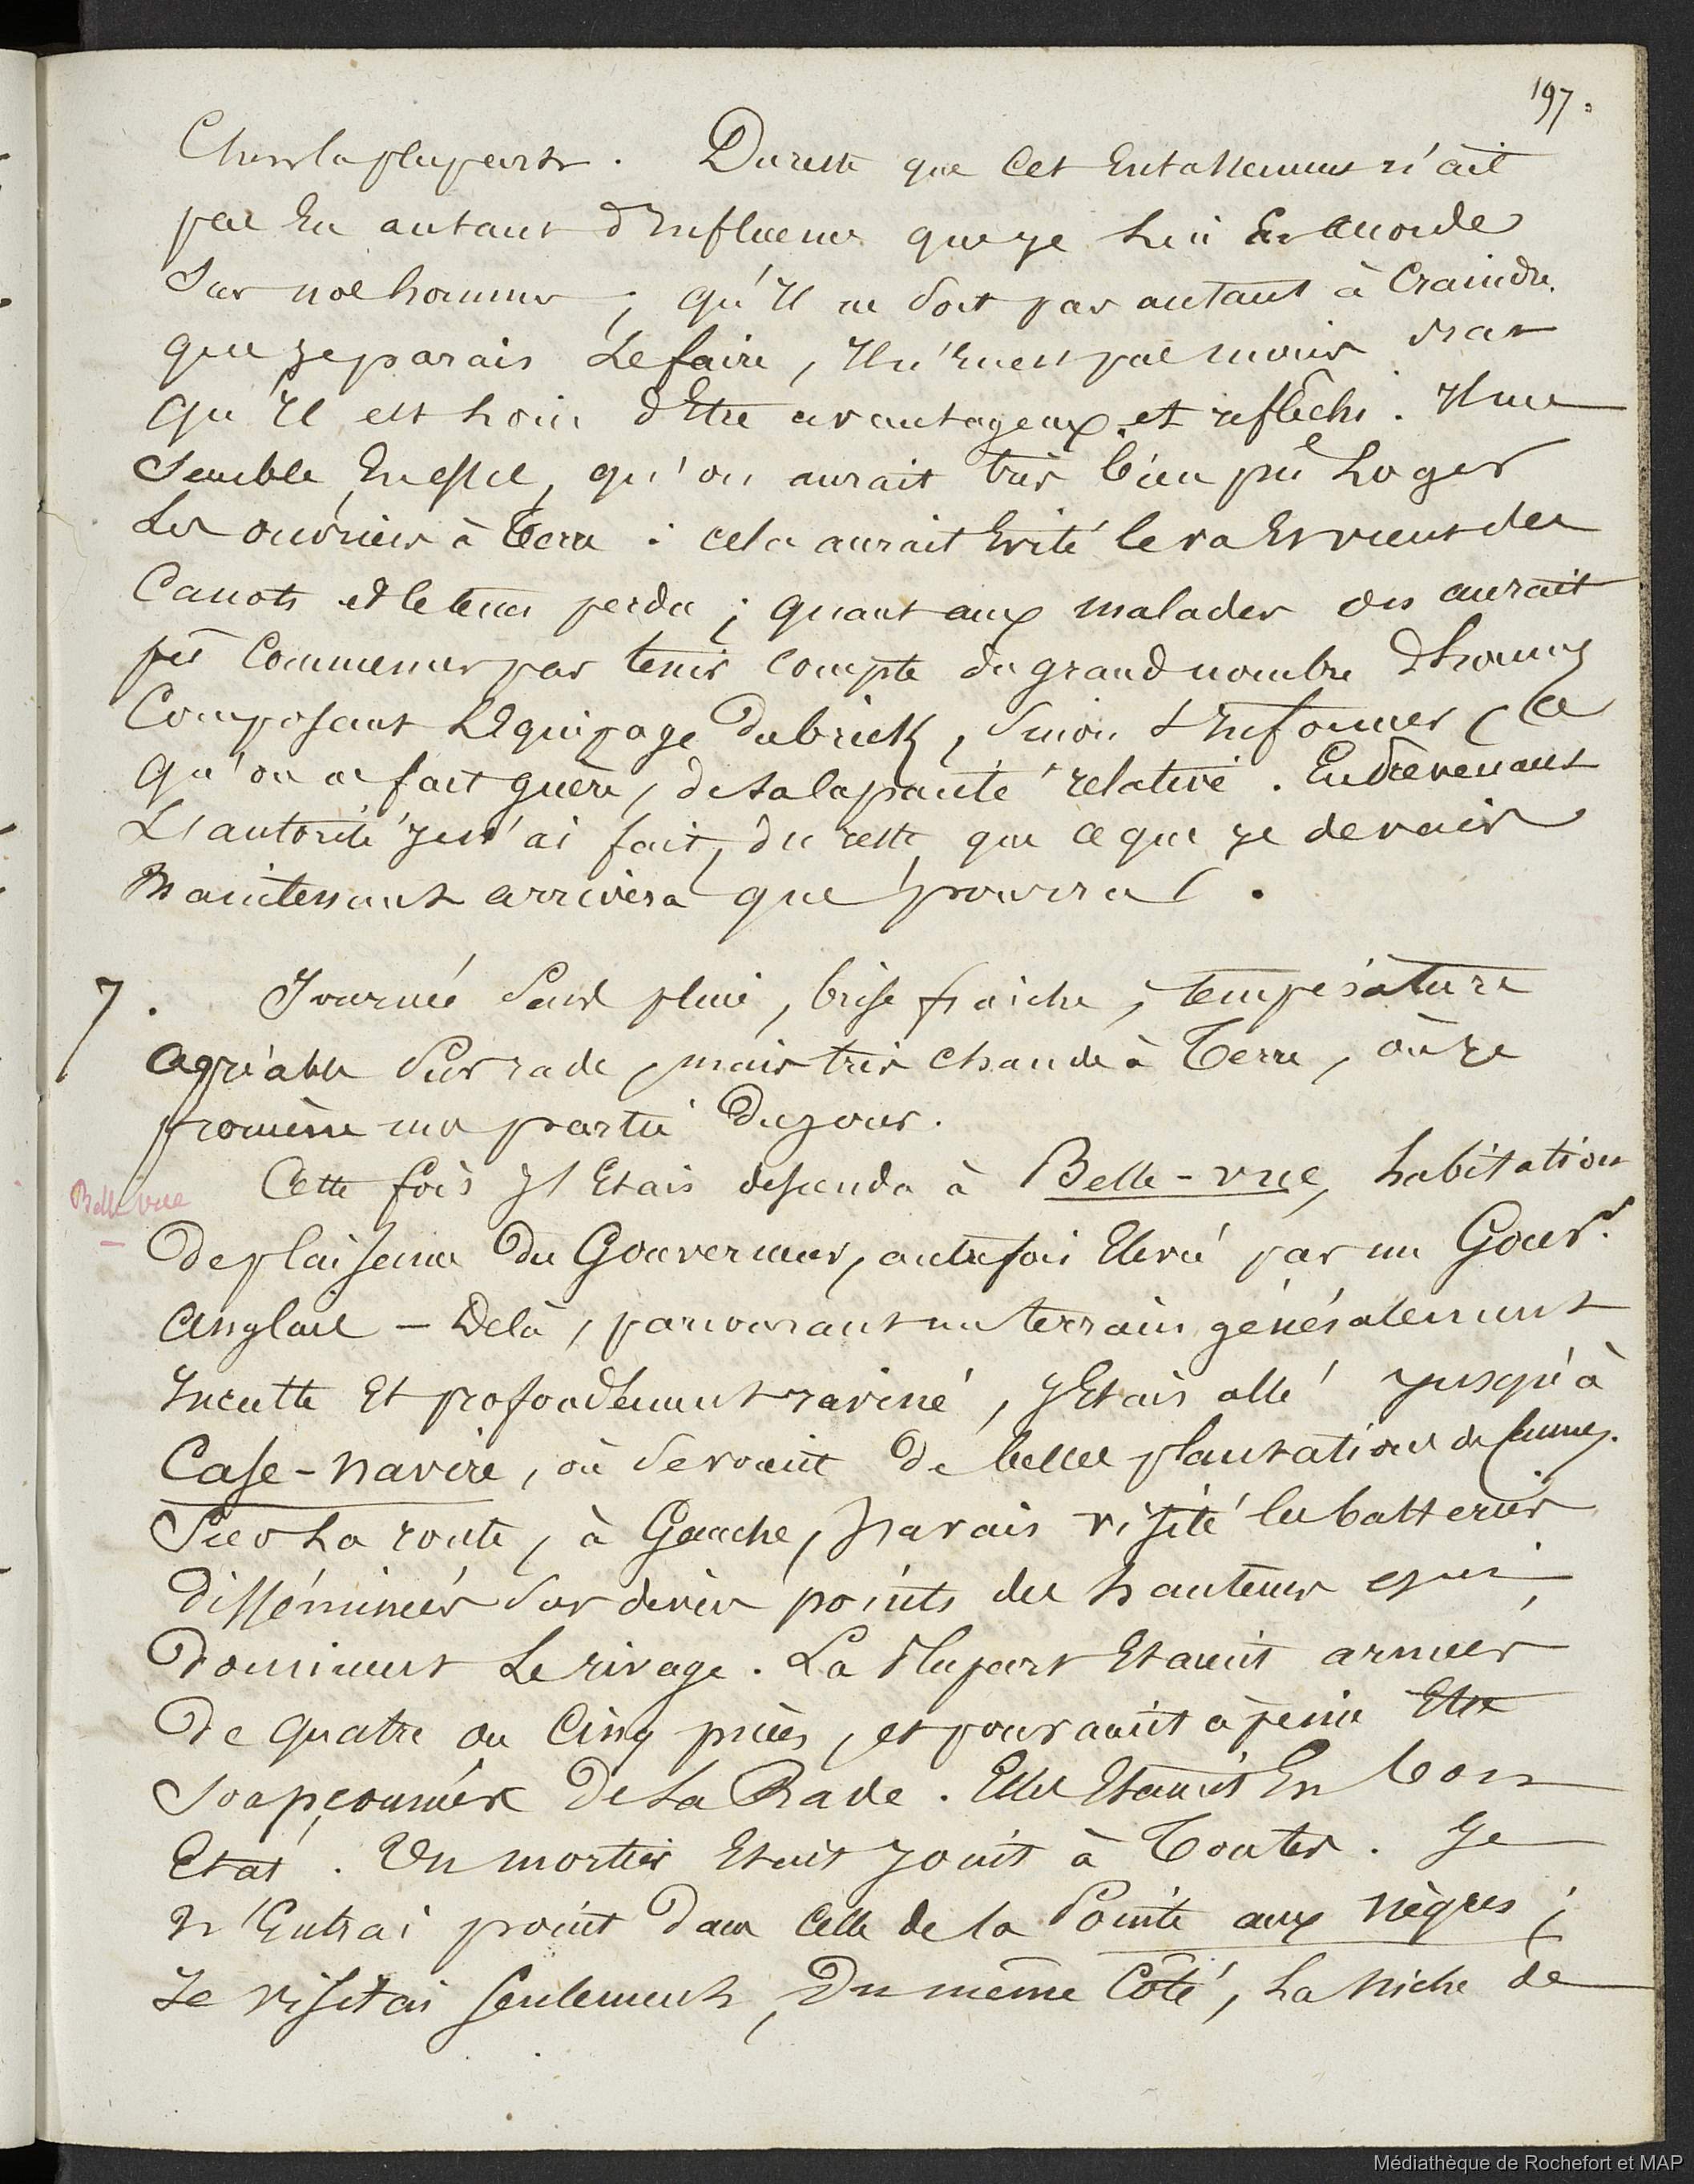 197.
Chez la plupart. Du reste que cet Entassement n'ait
pas Eu autant d'Influence que je lui En accorde
Sur nos hommes ; qu'Il ne soit pas autant à Craindre
que je parais Le faire, Il n'En est pas moins vrai
qu'Il est loin d'Etre avantageux et réfléchi. Il me
Semble, En effet, qu'on aurait très bien pû Loger
Les ouvriers à terre : cela aurait Evité le va Et vient des
Canots et le tems perdu ; quant aux malades on aurait
pû Commencer par tenir compte du grand nombre d'hommes
Composant L'Equipage du brick, Sinon s'Informer (ce
qu'on ne fait guère) de sa capacité relative. En prévenant
L'autorité je n'ai fait, du reste, que ce que je devais
Maintenant arrivera que pourra.
7. Journée Sans pluie, brise fraiche, température
agréable Sur rade, mais très chaude à Terre, où je
promène une partie du jour.
Cette fois J'Etais descendu à Belle-vue, habitation
Belle vue
De plaisance Du Gouverneur, autrefois Elevée par un Gouvr.
Anglais – De là, parcourant un terrain généralement
Inculte Et profondément raviné, J'Etais allé jusqu'à
Case-navire, où Se voient De belles plantations de Cannes.
Sur La route, à Gauche, J'avais visité les batteries
Disséminées Sur divers points des hauteurs qui,
Dominent Le rivage. La Plupart Etaient armées
De quatre ou Cinq pièces, et pouvaient à peine Etre
Soupçonnées De La Rade. Elles Etaient En bon
Etat. Un mortier Etait joint à Toutes. Je
N'Entrai point Dans Celle de la Pointe aux nègres ;
Je visitai seulement, Du même Côté, La niche de
Médiathèque de Rochefort et MAP